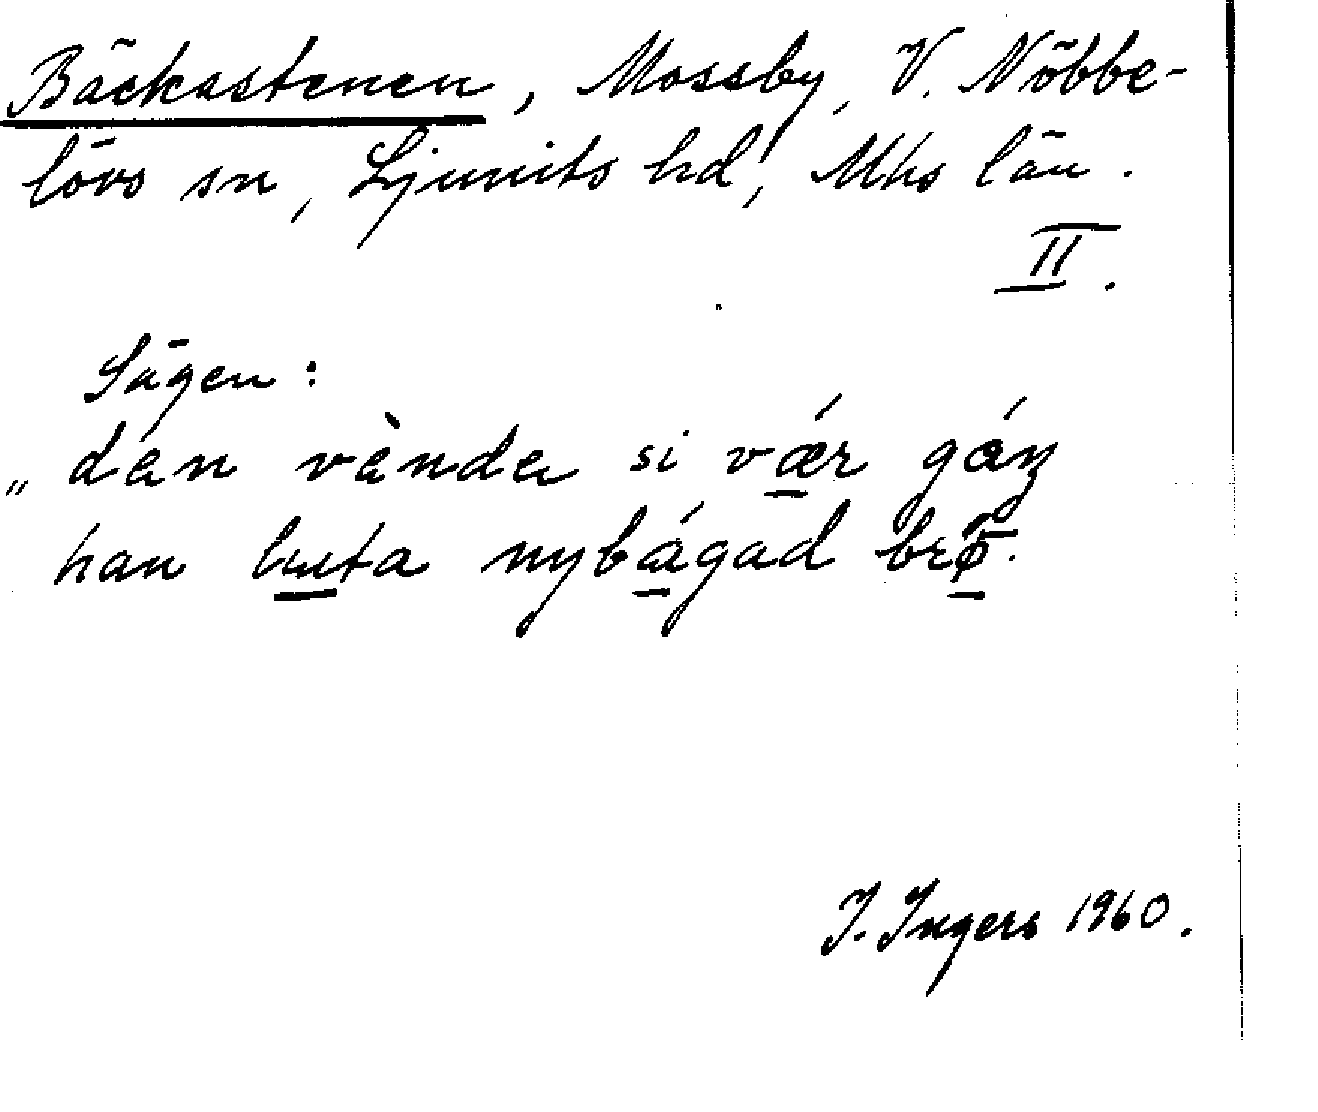 Bäckastenen, Mossby, V. Nöbbe-
lövs sn, Ljunits hd, Mhs län.
II.
Sägen:
„ den vànda si vǽr gáŋ
han luta nybágad brø̄.
I. Ingers 1960.